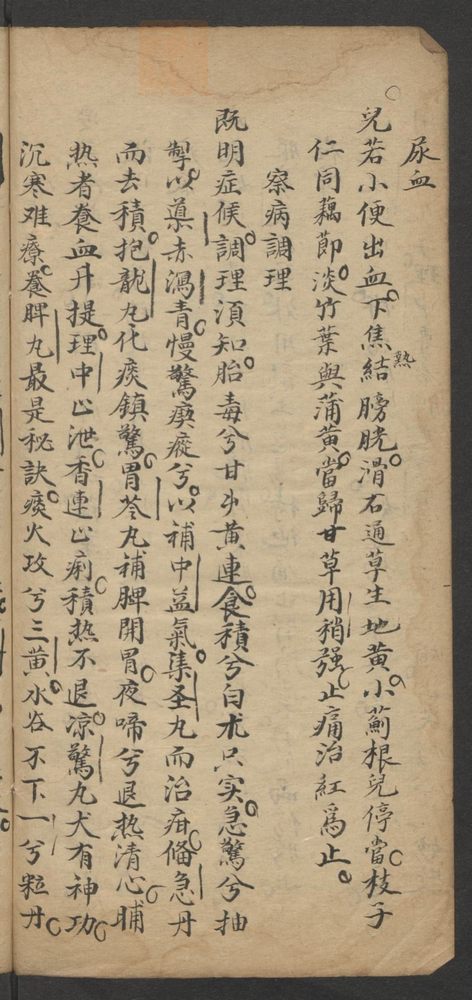 尿血
兒若小便出血。下焦結熱膀胱。滑石通草生地黄。小薊根兒停當。枝子
仁同藕節。淡竹葉與蒲黄。當歸甘草用稍强。止痛治紅為止。
察病調理
既明症候。調理須知。胎毒兮甘艸黄連。食積兮白朮只实。急驚兮抽
掣。以導赤瀉青。慢驚瘼瘲兮。以補中益氣。集圣丸而治疳。俻急丹
而去積。抱龍丸化痰鎮驚。胃苓丸補脾開胃。夜啼兮退热清心。晡
热者養血丹提。理中止泄。香連止痢。積热不退。凉驚丸大有神功。
沉寒难療。養脾丸最是秘訣。痰火攻兮三黄。水谷不下一兮粒丹。